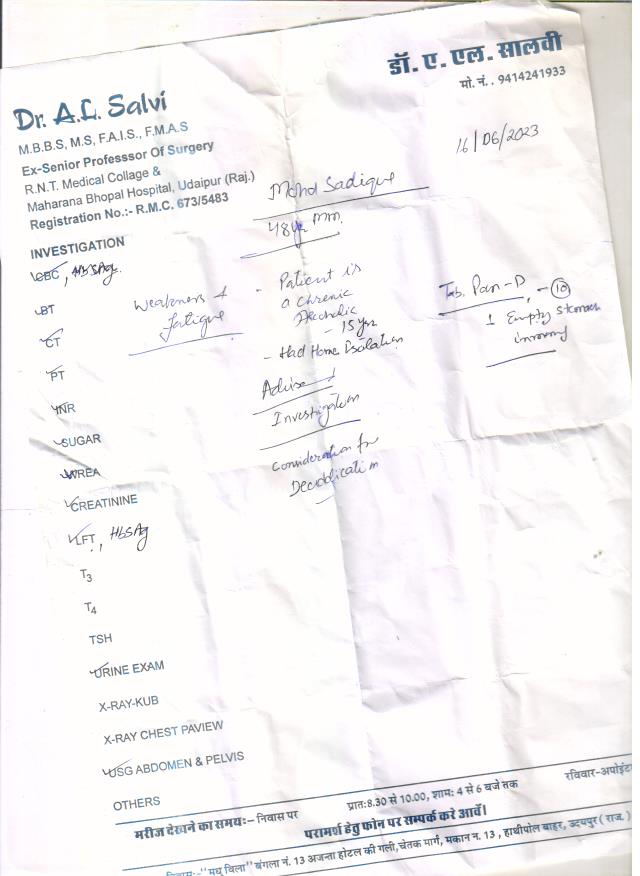 डॉ. ए. एल. सालवी
मो. नं. . 9414241933
Dr. A.L. Salvi
M.B.B.S, M.S, F.A.I.S., F.M.A.S
Ex-Senior Professsor Of Surgery
R.N.T. Medical Collage &
Maharana Bhopal Hospital, Udaipur (Raj.)
Registration No.:- R.M.C. 673/5483
16/06/2023
Mohd Sadique
48yr
INVESTIGATION
CBC, HbSAg
BT
CT
PT
INR
SUGAR
UREA
CREATININE
LFT, HbSAg
T3
T4
TSH
URINE EXAM
X-RAY-KUB
X-RAY CHEST PAVIEW
USG ABDOMEN & PELVIS
OTHERS
Weakness &
fatigue
- Patient is
a chronic
Alcoholic
- 15 yr
- Had Home Isolation
Advise
Investigation
Consideration for
Tab. Pan-D - 10
1 Empty stomach
मरीज देखने का समय:– निवास पर
प्रात:8.30 से 10.00, शाम: 4 से 6 बजे तक
रविवार-अपोइंट
परामर्श हेतु फोन पर सम्पर्क करे आवें।
"मधु विला" बंगला नं. 13 अजन्ता होटल की गली, चेतक मार्ग, मकान न. 13 , हाथीपोल बाहर, उदयपुर ( राज. )